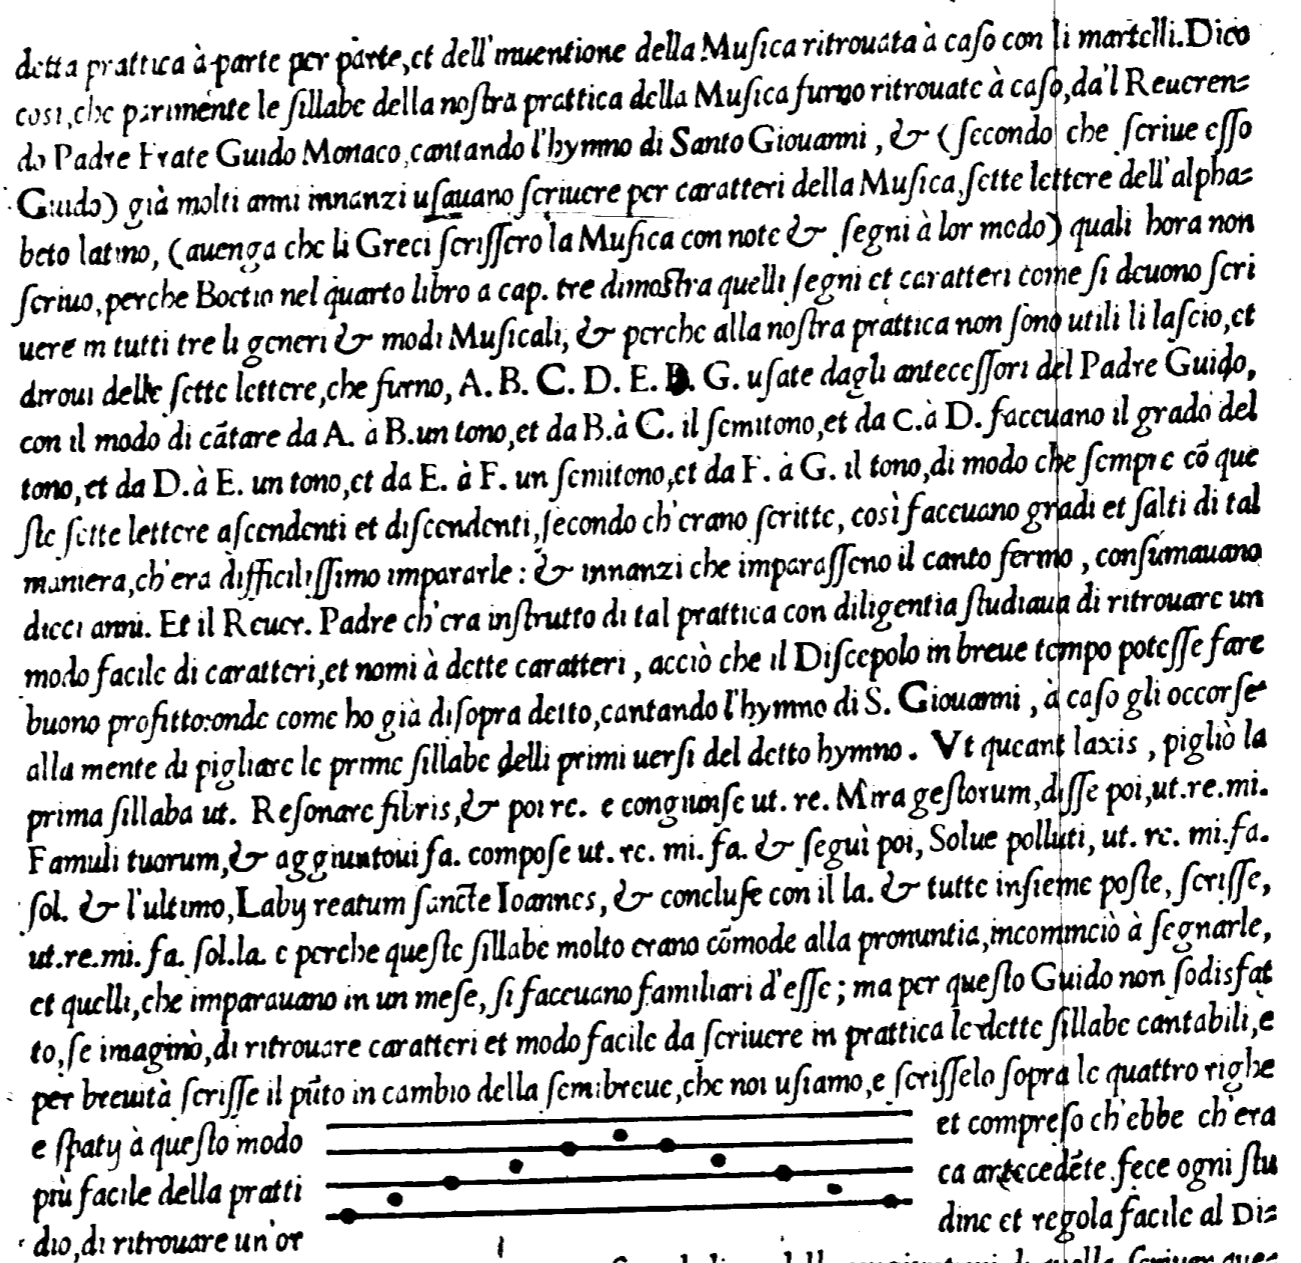 detta prattica à parte per parte, et dell'inuentione della Muſica ritrouata à caſo con li martelli. Dico
cosi, che parimente le ſillabe della noſtra prattica della Muſica furno ritrouate à caſo, da'l Reueren=
do Padre Frate Guido Monaco, cantando l'hymno di Santo Giouanni, & (ſecondo che ſcriue eſſo
Guido) già molti anni innanzi uſauano ſcriuere per caratteri della Muſica, ſette lettere dell'alpha=
beto latino, (auenga che li Greci ſcriſſero la Muſica con note & ſegni à lor modo) quali hora non
ſcriuo, perche Boetio nel quarto libro a cap. tre dimoſtra quelli ſegni et caratteri come ſi deuono ſcri
uere in tutti tre li generi & modi Muſicali, & perche alla noſtra prattica non ſono utili li laſcio, et
diroui delle ſette lettere, che furno, A. B. C. D. E. F. G. uſate dagli anteceſſori del Padre Guido,
con il modo di cãtare da A. à B. un tono, et da B. à C. il ſemitono, et da C. à D. faceuano il grado del
tono, et da D. à E. un tono, et da E. à F. un ſemitono, et da F. à G. il tono, di modo che ſempre cõ que
ſte ſette lettere aſcendenti et diſcendenti, ſecondo ch'erano ſcritte, così faceuano gradi et ſalti di tal
maniera, ch'era difficiliſſimo impararle: & innanzi che imparaſſeno il canto fermo, conſumauano
dieci anni. Et il Reuer. Padre ch'era inſtrutto di tal prattica con diligentia ſtudiaua di ritrouare un
modo facile di caratteri, et nomi à dette caratteri, acciò che il Diſcepolo in breue tempo poteſſe fare
buono profitto: onde come ho già diſopra detto, cantando l'hymno di S. Giouanni, à caſo gli occorſe
alla mente di pigliare le prime ſillabe delli primi uerſi del detto hymno. Vt queant laxis, pigliò la
prima ſillaba ut. Reſonare fibris, & poi re. e congiunſe ut. re. Mira geſtorum, diſſe poi, ut. re. mi.
Famuli tuorum, & aggiuntoui fa. compoſe ut. re. mi. fa. & ſeguì poi, Solue polluti, ut. re. mi. fa.
ſol. & l'ultimo, Labij reatum ſancte Ioannes, & concluſe con il la. & tutte inſieme poſte, ſcriſſe,
ut. re. mi. fa. ſol. la. e perche queſte ſillabe molto erano cõmode alla pronuntia, incominciò à ſegnarle,
et quelli, che imparauano in un meſe, ſi faceuano familiari d'eſſe; ma per queſto Guido non ſodisfat
to, ſe imaginò, di ritrouare caratteri et modo facile da ſcriuere in prattica le dette ſillabe cantabili, è
per breuità ſcriſſe il pũto in cambio della ſemibreue, che noi uſiamo, e ſcriſſelo ſopra le quattro righe
e ſpatij à queſto modo
più facile della pratti
dio, di ritrouare un'or
et compreſo ch'ebbe ch'era
ca antecedẽte fece ogni ſtu
dine et regola facile al Di=